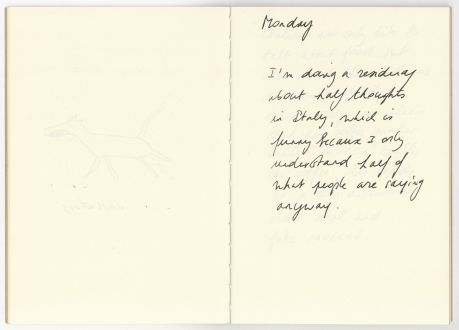 Monday
I'm doing a residency
about half thoughts
in Italy, which is
funny because I only
understand half of
what people are saying
anyway.